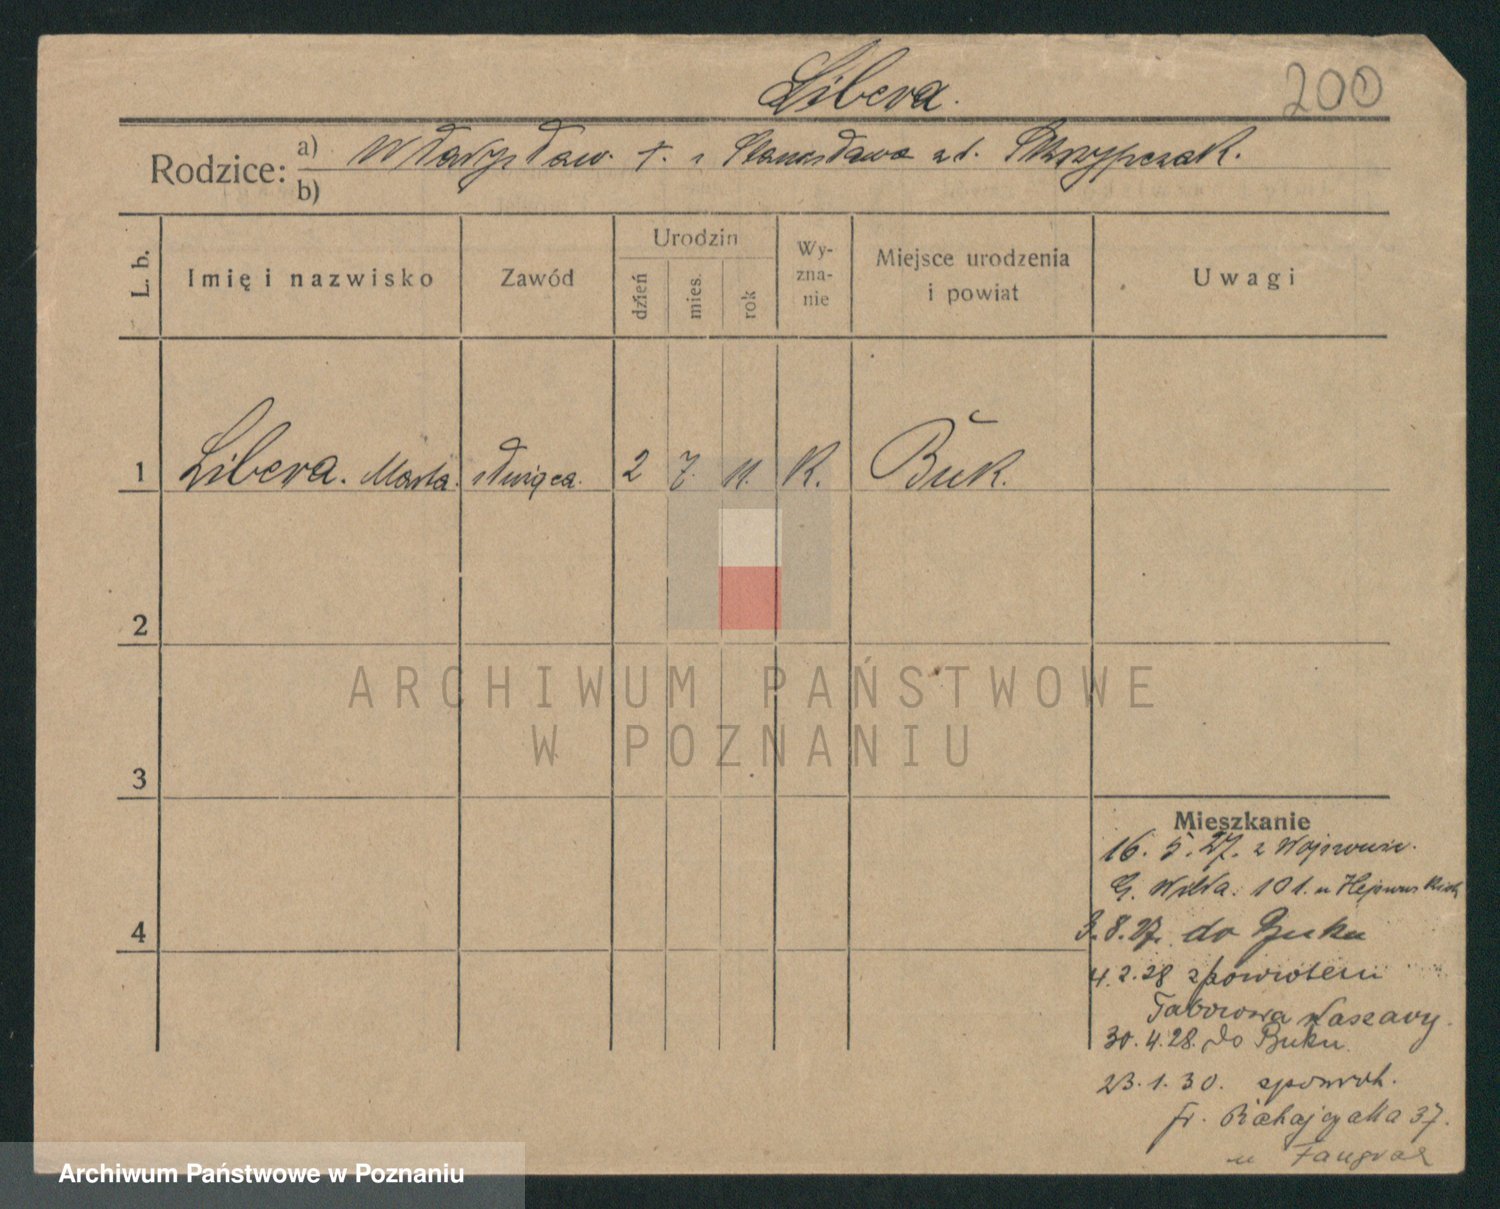 Libera.
200
Rodzice: a) Władysław. †. i Stanisława zd. Skrzypczak.
b)
L. b. Imię i nazwisko Zawód Urodzin dzień mies. rok Wyznanie Miejsce urodzenia i powiat Uwagi
1 Libera. Marta. służąca. 2 7. 11. K. Buk.
2
ARCHIWUM PAŃSTWOWE
W POZNANIU
3
Mieszkanie
16. 5. 27. z
G. Wilda. 101. u
4
3. 8. 27. do Buku
4. 2. 28 zpowrotem
30. 4. 28. do Buku
23. 1. 30. zpowrot.
Fr. Ratajczaka 37.
u
Archiwum Państwowe w Poznaniu